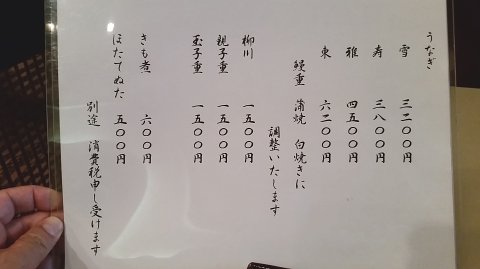 うなぎ
雪 三二〇〇円
寿 三八〇〇円
雅 四五〇〇円
東 六二〇〇円
鰻重 蒲焼 白焼きに
調整いたします
柳川 一五〇〇円
親子重 一五〇〇円
玉子重 一五〇〇円
きも煮 六〇〇円
ほたてぬた 五〇〇円
別途 消費税申し受けます